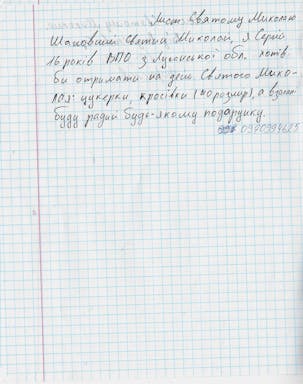 Лист Святому Миколаю
Шановний Святий Миколай, я Сергій
16 років ВПО з Луганської обл. хотів
би отримати на день Святого Мико-
лая: цукерки, кросівки (40розмір), а взагалі
буду радий будь-якому подарунку.
0970994625